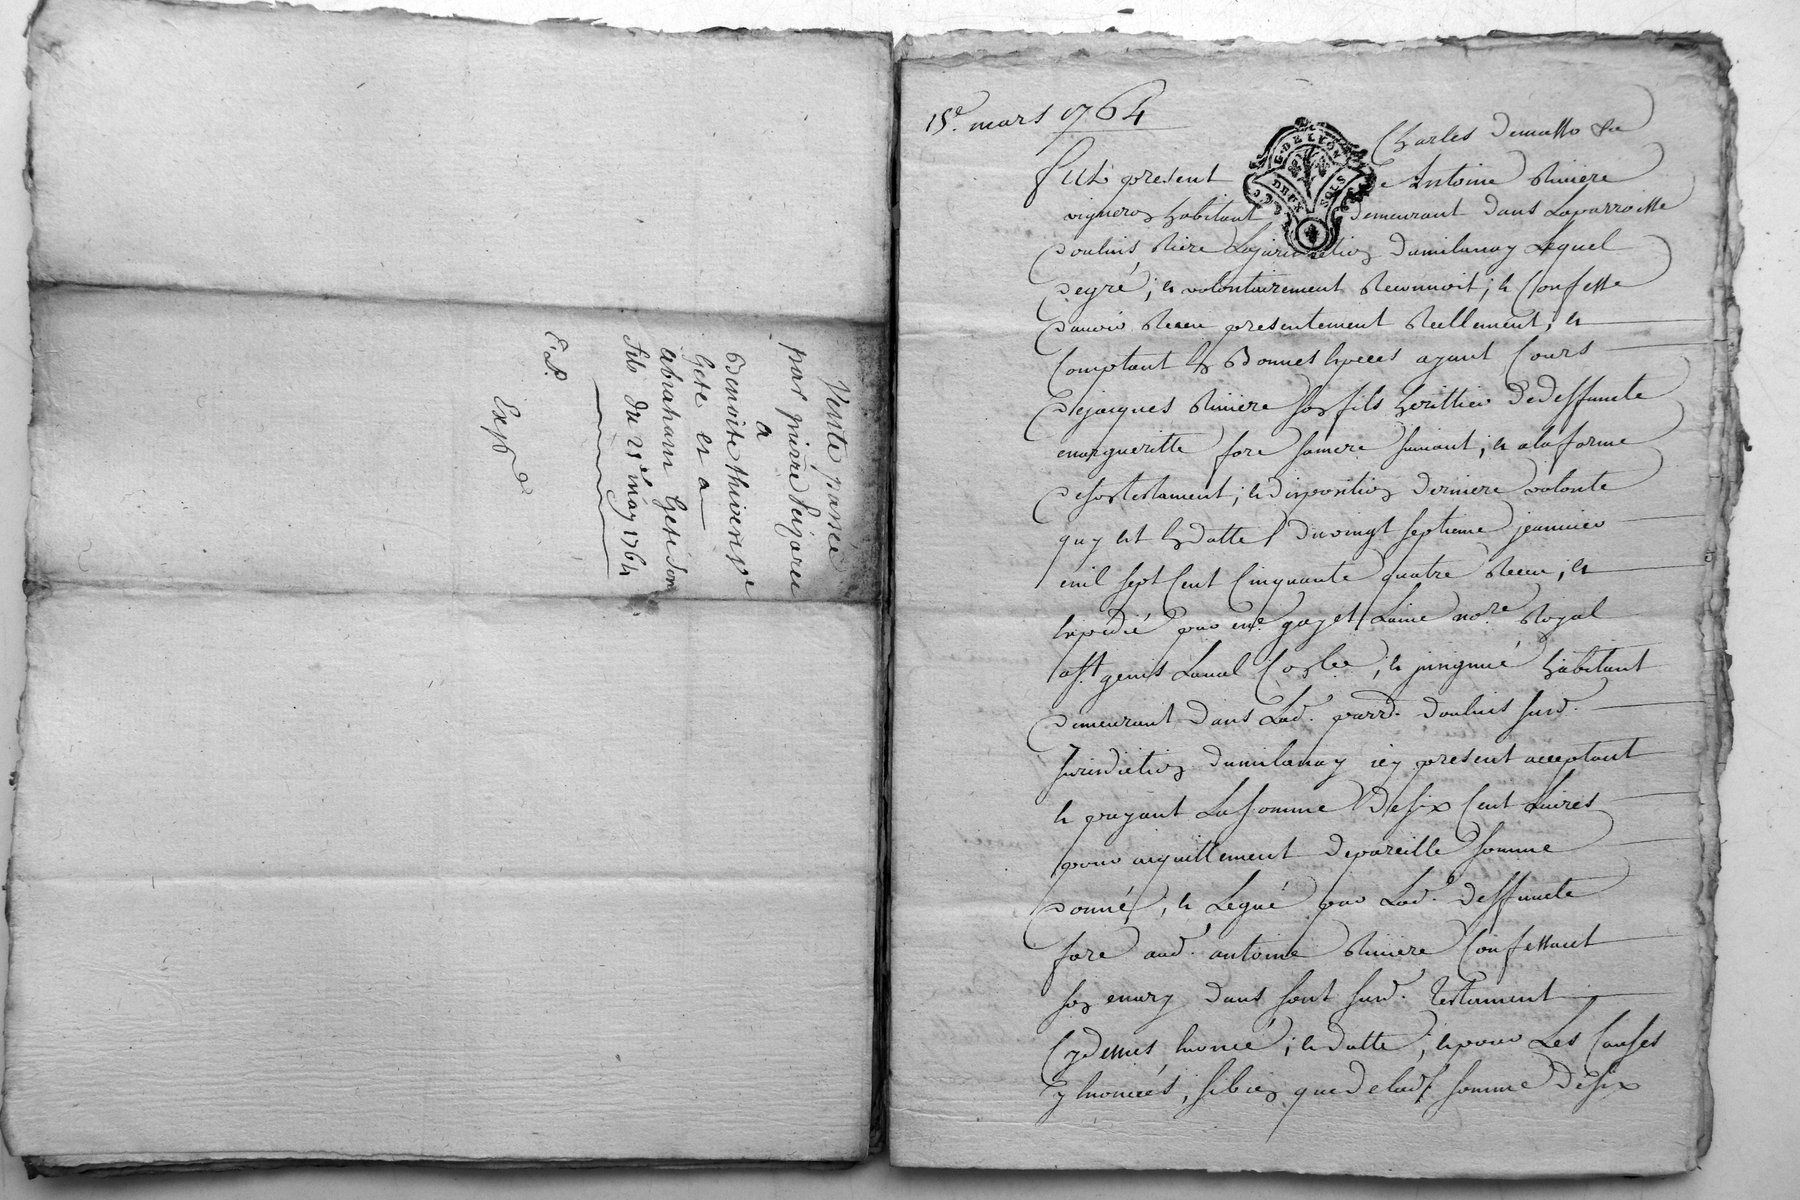 Vente passée
par pierre
a
Benoite thivend ve
Gete et a
abraham Gete son
fils du 21e may 1764
E.P.
Exp de
15e. mars 1764
G. DE LYON
DEUX SOLS
Charles
fut present Antoine Riviere
vigneron habitant demeurant dans Laparroisse
doulins riere Lajuridiction damilanay Lequel
degré, et volontairement Reconnoit, et Confesse
davoir Receu presentement Reellement, et
Comptant en Bonnes Especes ayant Cours
dejacques Riviere son fils heritier De deffuncte
margueritte fore samere suivant, et alaforme
desontestament, et disposition derniere volonté
quy est en datte du vingt septieme jeanvier
mil sept Cent Cinquante quatre Receu, et
Expedié par me. gayet Laine nore. Royal
a st genis Laval Conlee, et insignué habitant
demeurant dans Lad. parr. doulins susd.
Jurisdiction damilanay icy present acceptant
et payant La somme De six Cent Livres
pour acquittement depareille somme
donné, et Legué par Lad. deffuncte
fore aud. antoine Riviere
son mary dans sont susd. testament
Cy dessus Enoncé, et datte, et pour Les Causes
y Enoncées, si bien que de lad. somme de six